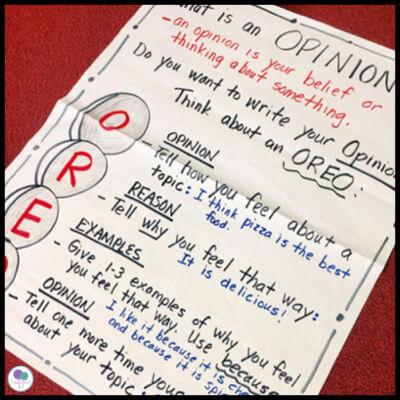 What is an OPINION
- an opinion is your belief or
thinking about something.
Do you want to write your Opinion
Think about an OREO:
O
OPINION
- Tell how you feel about a
topic: I think pizza is the best
food.
R
REASON
- Tell why you feel that way:
It is delicious!
E
EXAMPLES
- Give 1-3 examples of why you feel
you feel that way. Use because
I like it because it is
and because it is
OPINION
- Tell one more time your
about your topic: